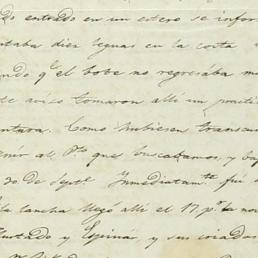 do entrado en un estero se infor
taba diez leguas en la costa
ndo q.e el bobe no regresaba m
de aviso tomaron allí un práctic
ntura. Como hubiesen transcu
enir al P.to que buscabamos, y baj
20 de Sept.e Inmediatam.te fué
la lancha llegó allí el 17 p.r la no
Hurtado y Espina, y sus criados